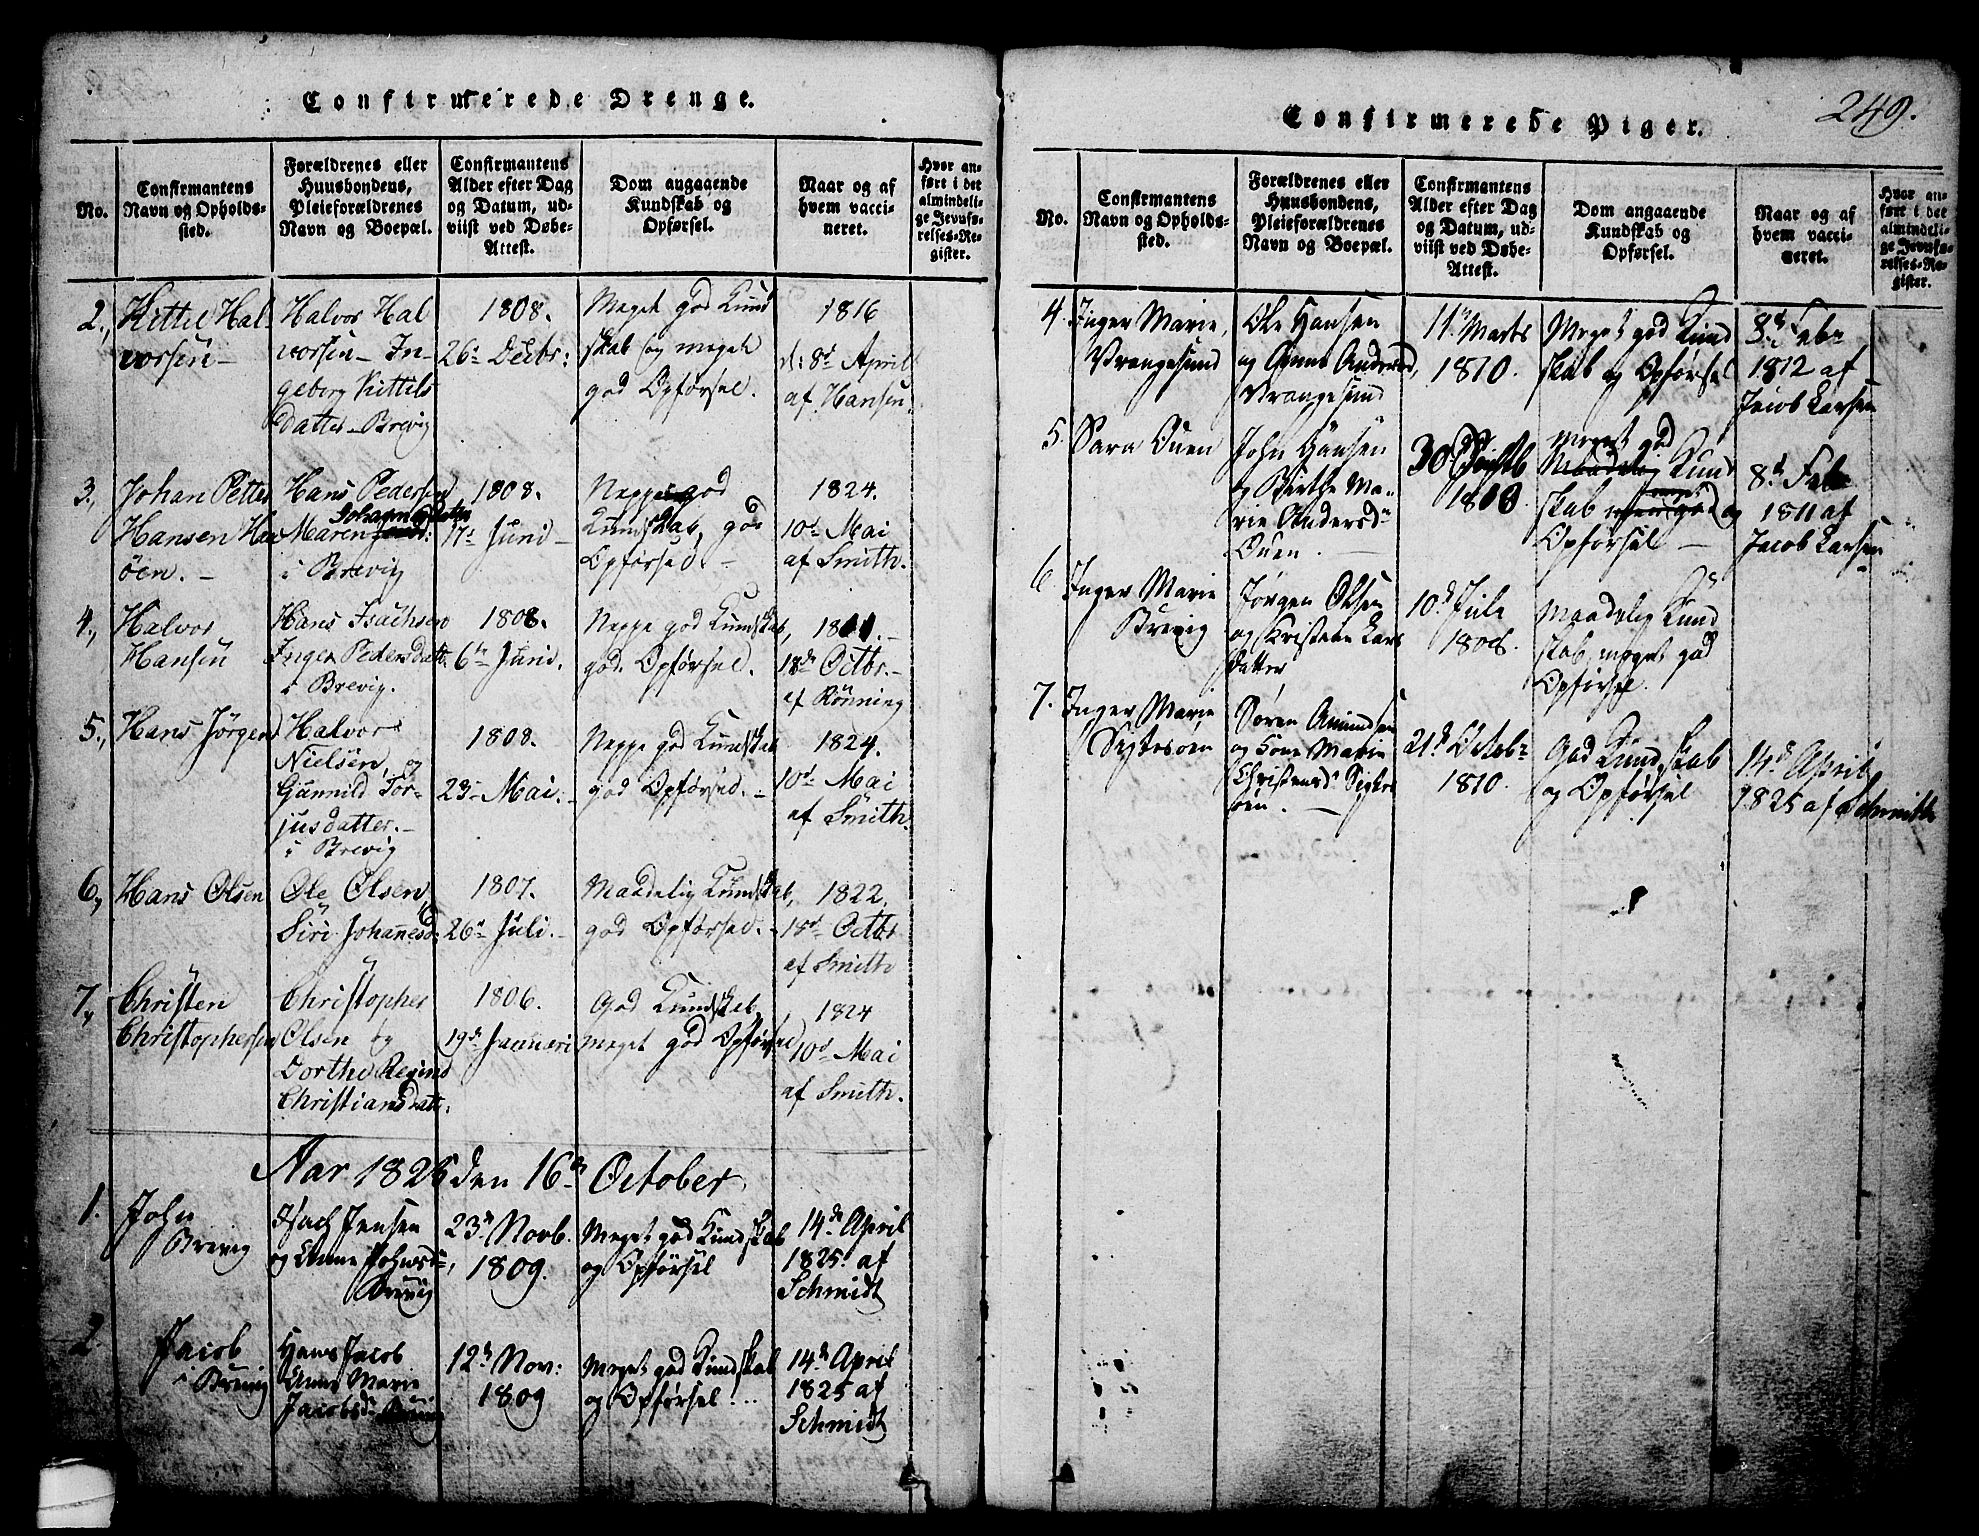 Confirmerede Drenge.
No.
Confirmantens
Navn og Opholds-
sted.
Forældrenes eller
Huusbondens,
Pleieforældrenes
Navn og Boepæl.
Confirmantens
Alder efter Dag
og Datum, ud-
viist ved Døbe-
Attest.
Dom angaaende
Kundskab og
Opførsel.
Naar og af
hvem vacci-
neret.
Hvor an-
ført i det
almindeli-
ge Jevnfø-
relses-Re-
gister.
2., Kittel Hal-
vorsen
Halvor Hal
vorsen - In-
geborg Kittels
datter - Brevig
1808.
26de Decbr:
Meget god Kund
skab og meget
god Opførsel.
1816
d: 8de April
af Hansen.
3., Johan Petter
Hansen
öen.
Hans Pedersen
Maren
i Brevig
1808.
17de Juni
Neppe god
Kundskab, god
Opførsel.
1824.
10de Mai
af Smith.
4., Halvor
Hansen
Hans Isachsen
Inger Pedersdatt.
i Brevig.
1808.
6te Juni.
Neppe god Kundskab,
god Opførsel.
18de Octbr.
af Rönning
5., Hans Jörgen
Halvor
Nielsen og
Gunnild Tor-
jusdatter.
i Brevig
1808.
23de Mai.
Neppe god Kundskab
god Opførsel.
1824.
10de Mai
af Smith.
6., Hans Olsen
Ole Olsen,
Siri Johannesd.
1807.
26de Juli.
Maadelig Kundskab,
god Opførsel.
1822.
18de Octbr
af Smith
7., Christen
Christophersen
Christopher
Olsen og
Dorthe Regine
Christiansdatt.
1806.
19de Januari
God Kundskab,
meget god Opførsel
1824
10de Mai
af Smith.
Aar 1826 den 16de October
1. John
Brevig
Isach Jensen
og Anne Johnsdr,
Brevig
23de Novb.
1809.
Meget god Kundskab
og Opførsel
14de April
1825. af
Schmidt
2. Jacob
Brevig
Hans Jacob
Anne Marie
Jacobsdr Brevig
12te Nov:
1809
Meget god Kundskab
og Opførsel
14de April
1825 af
Schmidt
249.
Confirmerede Piger.
No.
Confirmantens
Navn og Opholds-
sted.
Forældrenes eller
Huusbondens,
Pleieforældrenes
Navn og Boepæl.
Confirmantens
Alder efter Dag
og Datum, ud-
viist ved Døbe-
Attest.
Dom angaaende
Kundskab og
Opførsel.
Naar og af
hvem vacci-
neret.
Hvor an-
ført i det
almindeli-
ge Jevnfø-
relses-Re-
gister.
4. Inger Marie,
Vrangesund
Ole Hansen
og Anne Andersd,
Vrangesund
11te Marts
1810.
Meget god Kund
skab og Opførsel
8de Feb
1812 af
Jacob Larsen
5. Sara Ouen
John Hansen
og Birthe Ma-
rie Andersdr
Ouen.
30
Meget god
Maadelig Kund
skab god og
Opførsel
8de Feb
1811 af
Jacob Larsen
6. Inger Marie
Brevig
Jørgen Olsen
og Kristine Lars
datter
10de Julii
1808.
Maadelig Kund
skab, meget god
Opførsel.
7. Inger Marie
Sigtesøen
Søren Amundsen
og Lene Marie
Christensdr Sigtes
øen.
21de Octobr
1810.
God Kundskab
og Opførsel
14de April
1825 af Schmidt